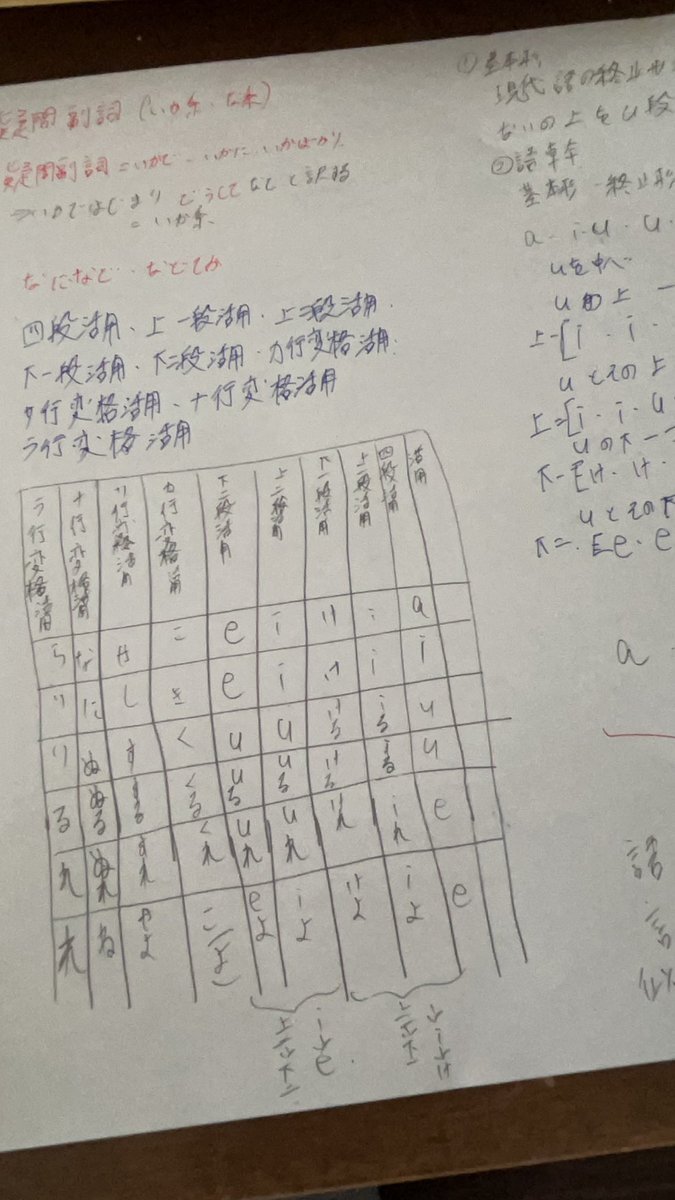 疑問副詞(いか系・な系)
疑問副詞=いかで・いかに・いかばかり
どうして などと訳する
=いか系
なに・など・などてか
四段活用、上一段活用、上二段活用、
下一段活用、下二段活用、カ行変格活用、
サ行変格活用、ナ行変格活用
ラ行変格活用
活用
四段活用
上一段活用
下一段活用
上二段活用
下二段活用
カ行変格活用
サ行変格活用
ナ行変格活用
ラ行変格活用
ら な せ こ e i け i a
り に し き e i け i i
り ぬ す く u u ける iる u
る ぬる する くる uる uる ける iる u
れ ぬれ すれ くれ uれ uれ けれ iれ e
れ ね せよ こ(よ) eよ iよ けよ iよ e
①基本形
現代語の終止形
ないの上をu段
②語幹
基本形 終止形
a・i・u・u・
uを中へ
uの上一
上一[i・i・
uとその上
上二[i・i・u
uの下一
下一[け・け・
uとその下
下二[e・e
a